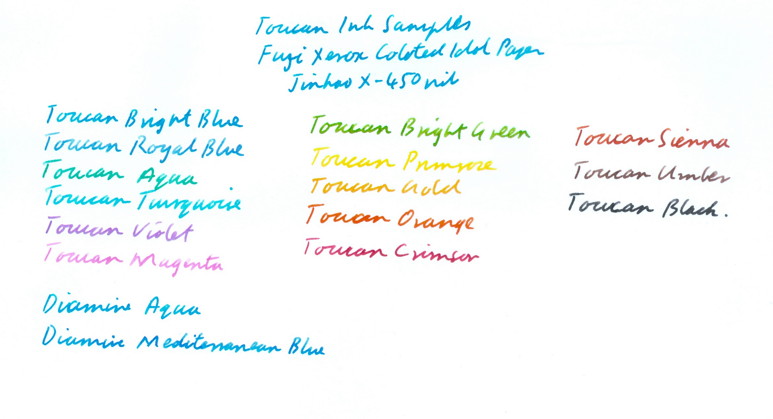 Toucan Ink Samples
Fuji Xerox Coloted Idol Paper
Jinhao X-450 nib
Toucan Bright Blue
Toucan Royal Blue
Toucan Aqua
Toucan Turquoise
Toucan Violet
Toucan Magenta
Diamine Aqua
Diamine Mediterranean Blue
Toucan Bright Green
Toucan Primrose
Toucan Gold
Toucan Orange
Toucan Crimson
Toucan Sienna
Toucan Umber
Toucan Black.